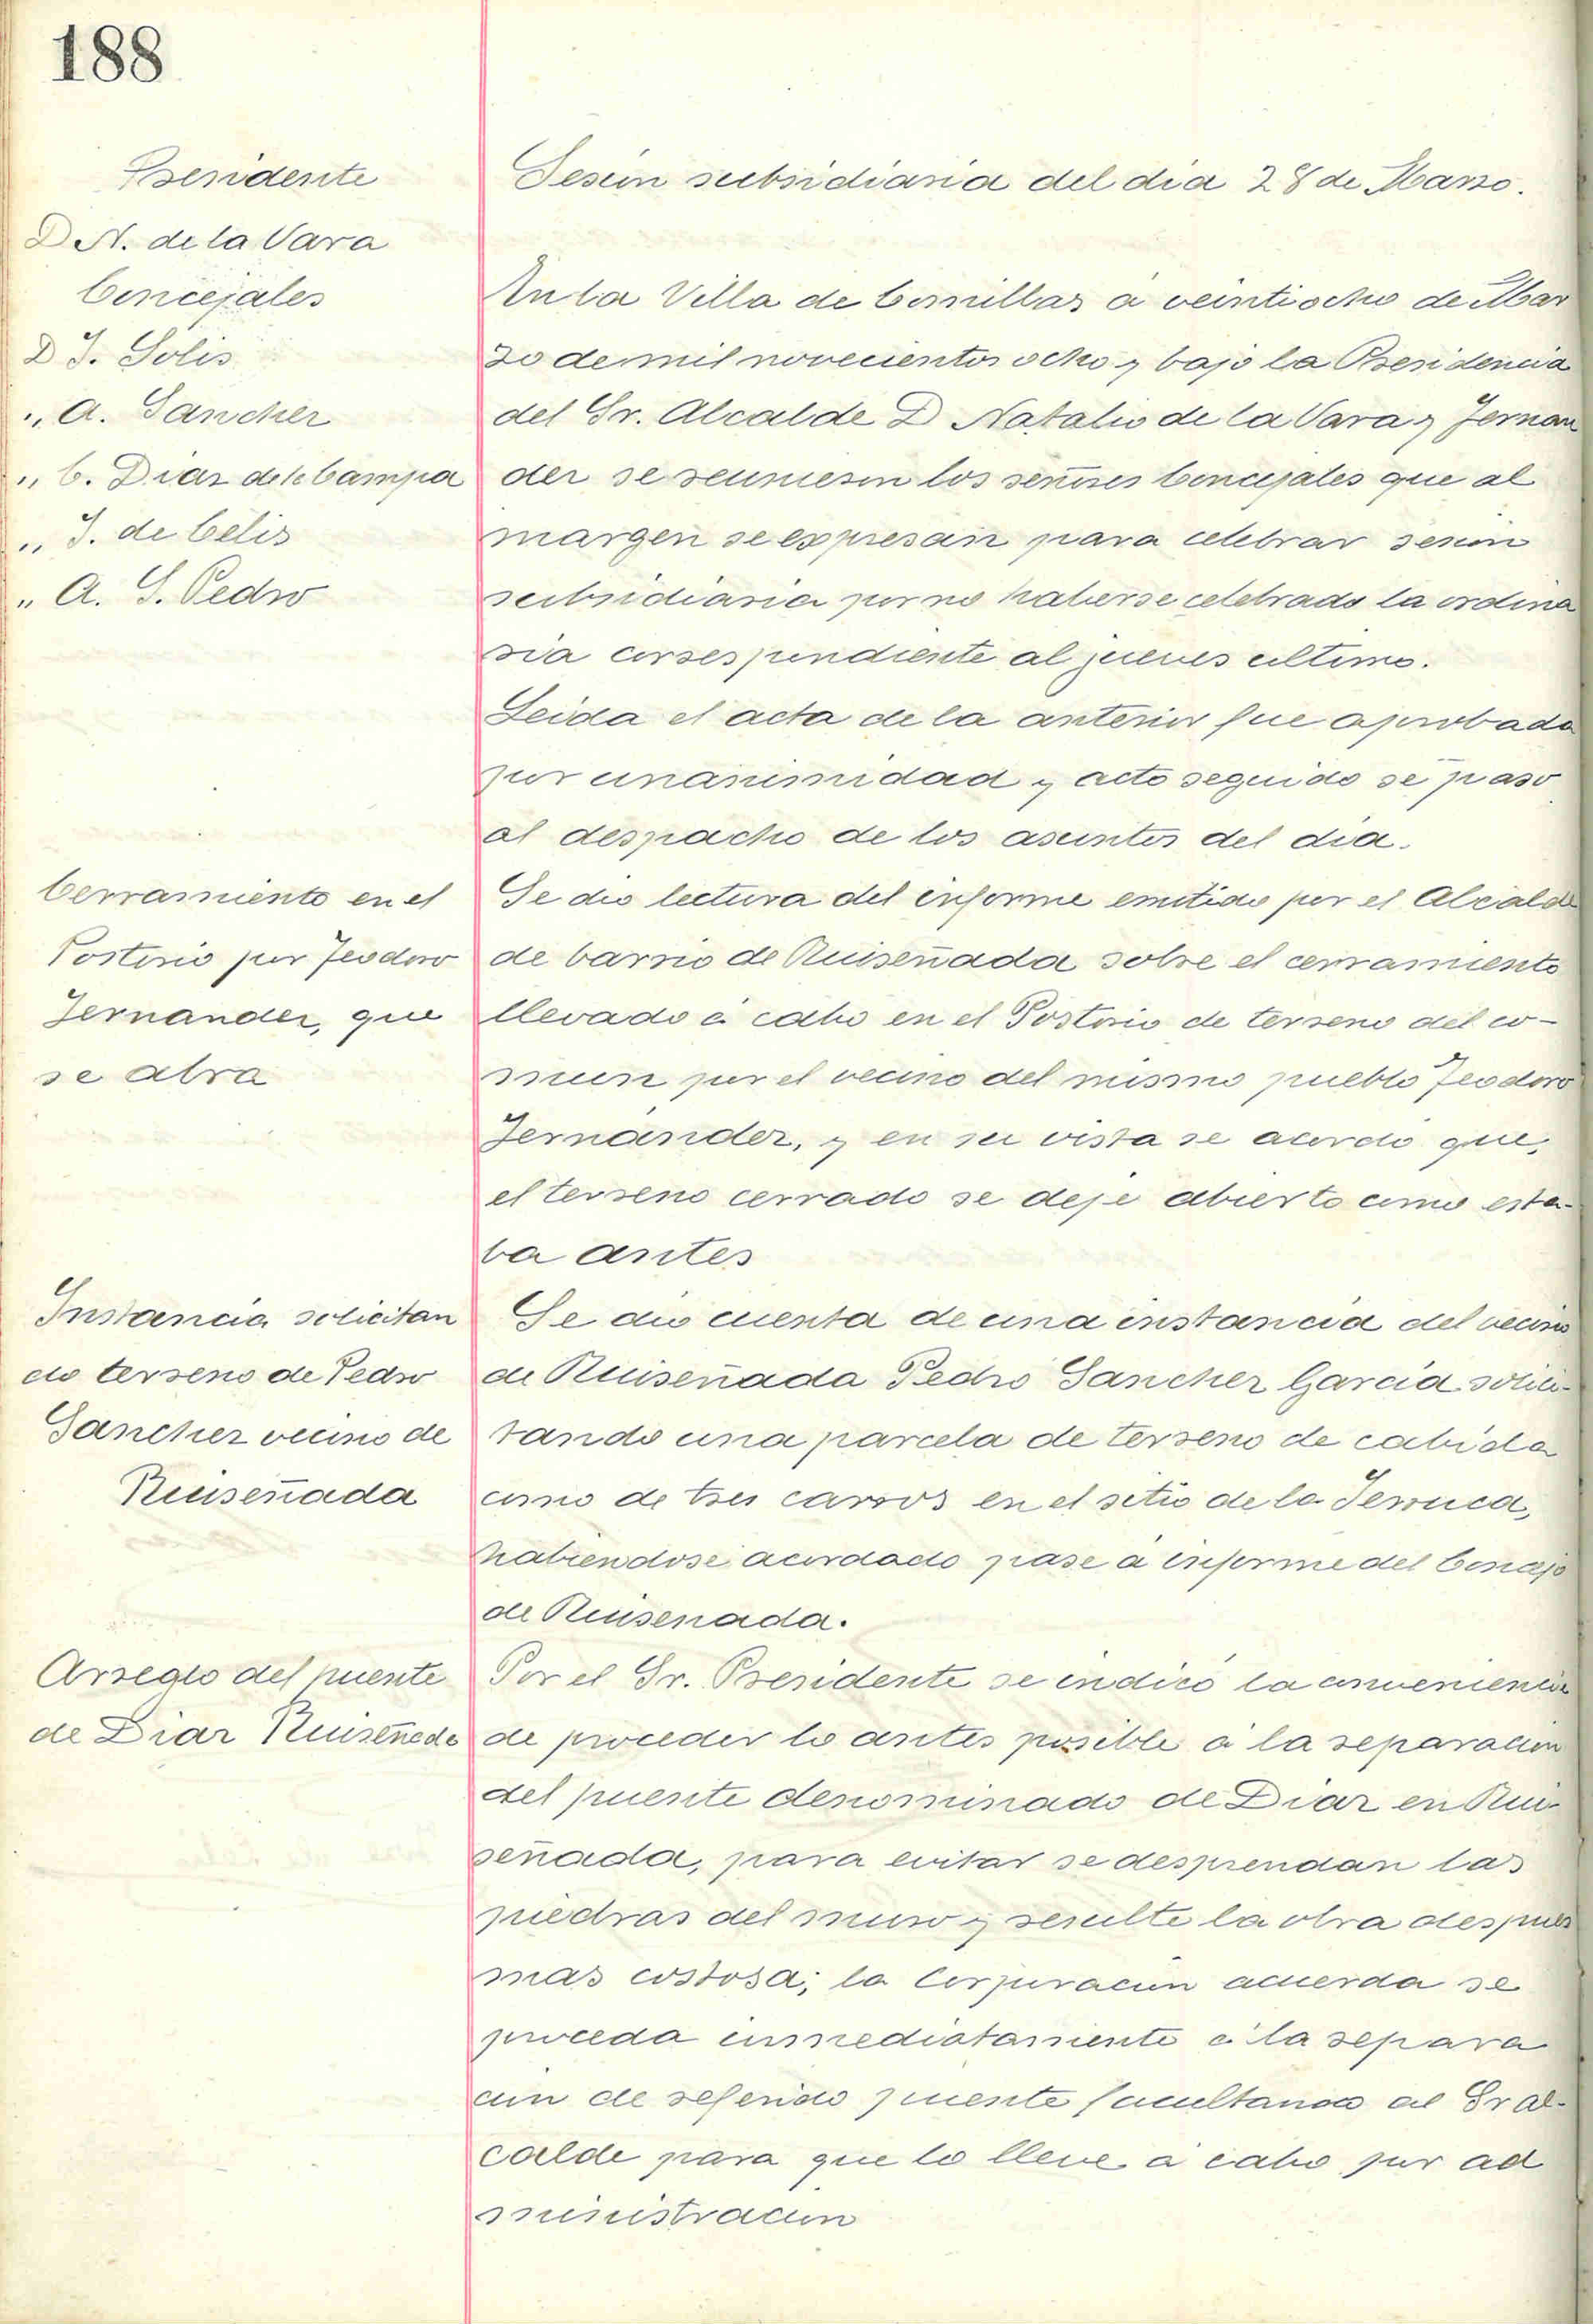 188
Presidente
D N. de la Vara
Concejales
D J. Solis
,, A. Sanchez
,, C. Diaz de la Campa
,, J. de Celis
,, A. S. Pedro
Sesion subsidiaria del dia 28 de Marzo.
En la Villa de Comillas á veintiocho de Mar
zo de mil novecientos ocho y bajo la Presidencia
del Sr. Alcalde D Natalio de la Vara y Fernan
dez se reunieron los señores Concejales que al
margen se expresan para celebrar sesion
subsidiaria por no haberse celebrado la ordina
ria correspondiente al jueves ultimo.
Leida el acta de la anterior fue aprobada
por unanimidad y acto seguido se paso
al despacho de los asuntos del dia.
Cerramiento en el
Postorio por Teodoro
Fernandez, que
se abra
Se dio lectura del informe emitido por el Alcalde
de barrio de Ruiseñada sobre el cerramiento
llevado á cabo en el Postorio de terreno del co-
mun por el vecino del mismo pueblo Teodoro
Fernández, y en su vista se acordó que,
el terreno cerrado se deje abierto como esta-
ba antes
Instancia solicitan
do terreno de Pedro
Sanchez vecino de
Ruiseñada
Se dio cuenta de una instancia del vecino
de Ruiseñada Pedro Sanchez Garcia solici-
tando una parcela de terreno de cabida
como de tres carros en el sitio de la
habiendose acordado pase á informe del Concejo
de Ruisenada.
Arreglo del puente
de Diaz Ruiseñada
Por el Sr. Presidente se indicó la conveniencia
de proceder lo antes posible á la reparacion
del puente denominado de Diaz en Rui-
señada, para evitar se desprendan las
piedras del muro y resulte la obra despues
mas costosa; la Corporacion acuerda se
proceda inmediatamente á la repara
cion de referido puente facultando al Sr Al-
calde para que lo lleve á cabo por ad
ministracion